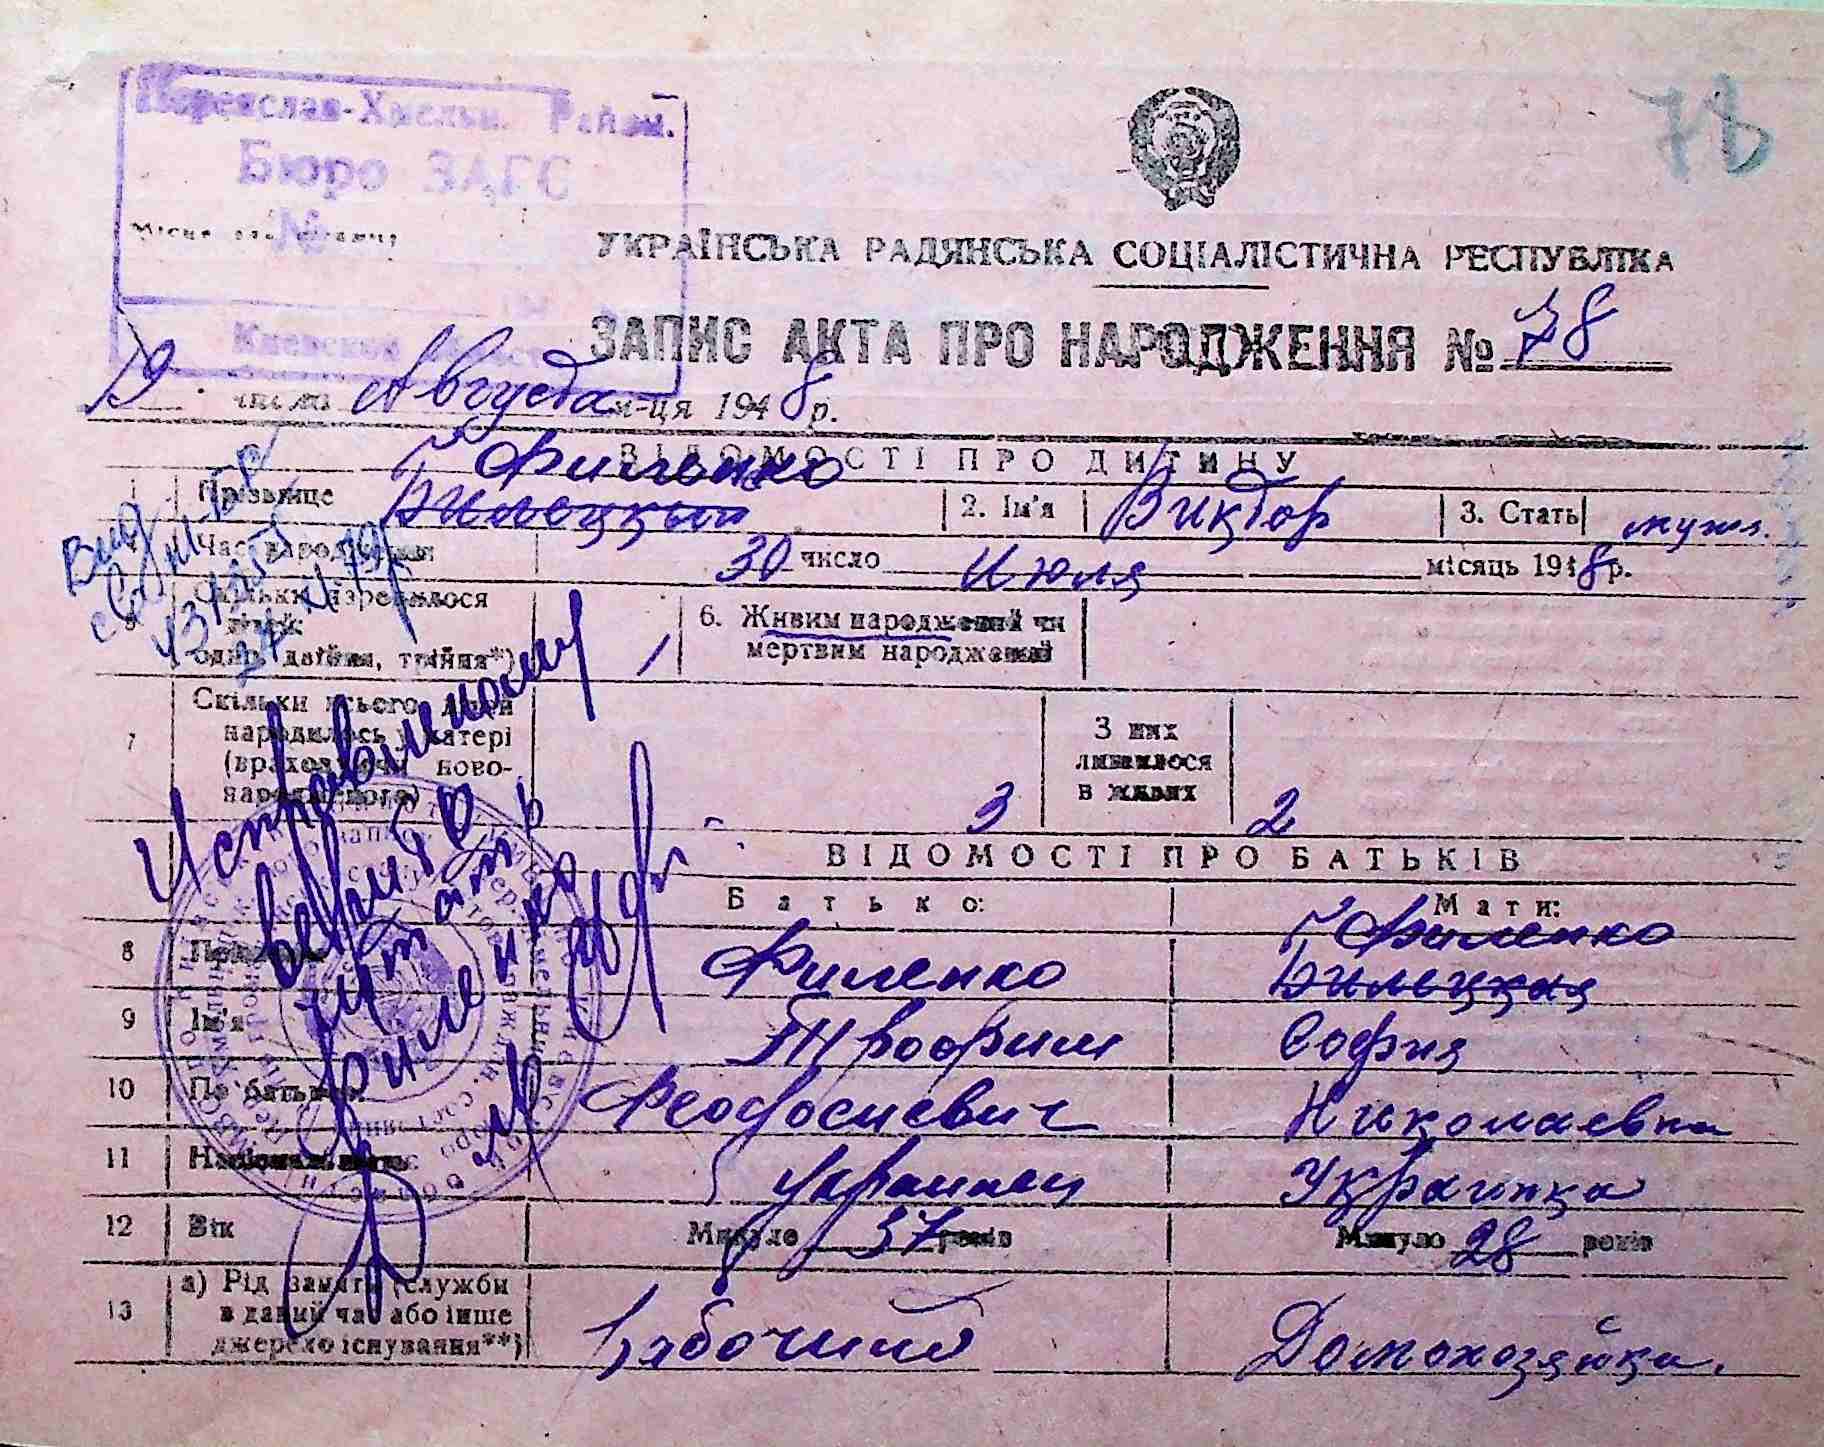 78
Переяслав-Хмельн. Район.
Бюро ЗАГС
№
УКРАЇНСЬКА РАДЯНСЬКА СОЦІАЛІСТИЧНА РЕСПУБЛІКА
ЗАПИС АКТА ПРО НАРОДЖЕННЯ № 78
19 числа Августа м-ця 1948 р.
ВІДОМОСТІ ПРО ДИТИНУ
Филенко
1 Прізвище Бильецкий 2. Ім'я Виктор 3. Стать мужс.
Час народження 30 число Июля місяць 1948 р.
5 Скільки народилося дітей: одно, двійня, трійня*) 1 6. Живим народжений чи мертвим народжений
7 Скільки всього дітей народилось у матері (враховуючи ново-народженого) 3 З них лишилося в живих 2
Исправленому
верить
Филенко
ВІДОМОСТІ ПРО БАТЬКІВ
Батько: Мати:
Филенко
8 Прізвище Филенко Бильецкая
9 Ім'я Трофим София
10 По батькові Феодосиевич Николаевна
11 Національність украинец Украинка
12 Вік Минуло 37 років Минуло 28 років
13 а) Рід занять (служби в даний час або інше джерело існування**) Рабочий Домохозяйка.